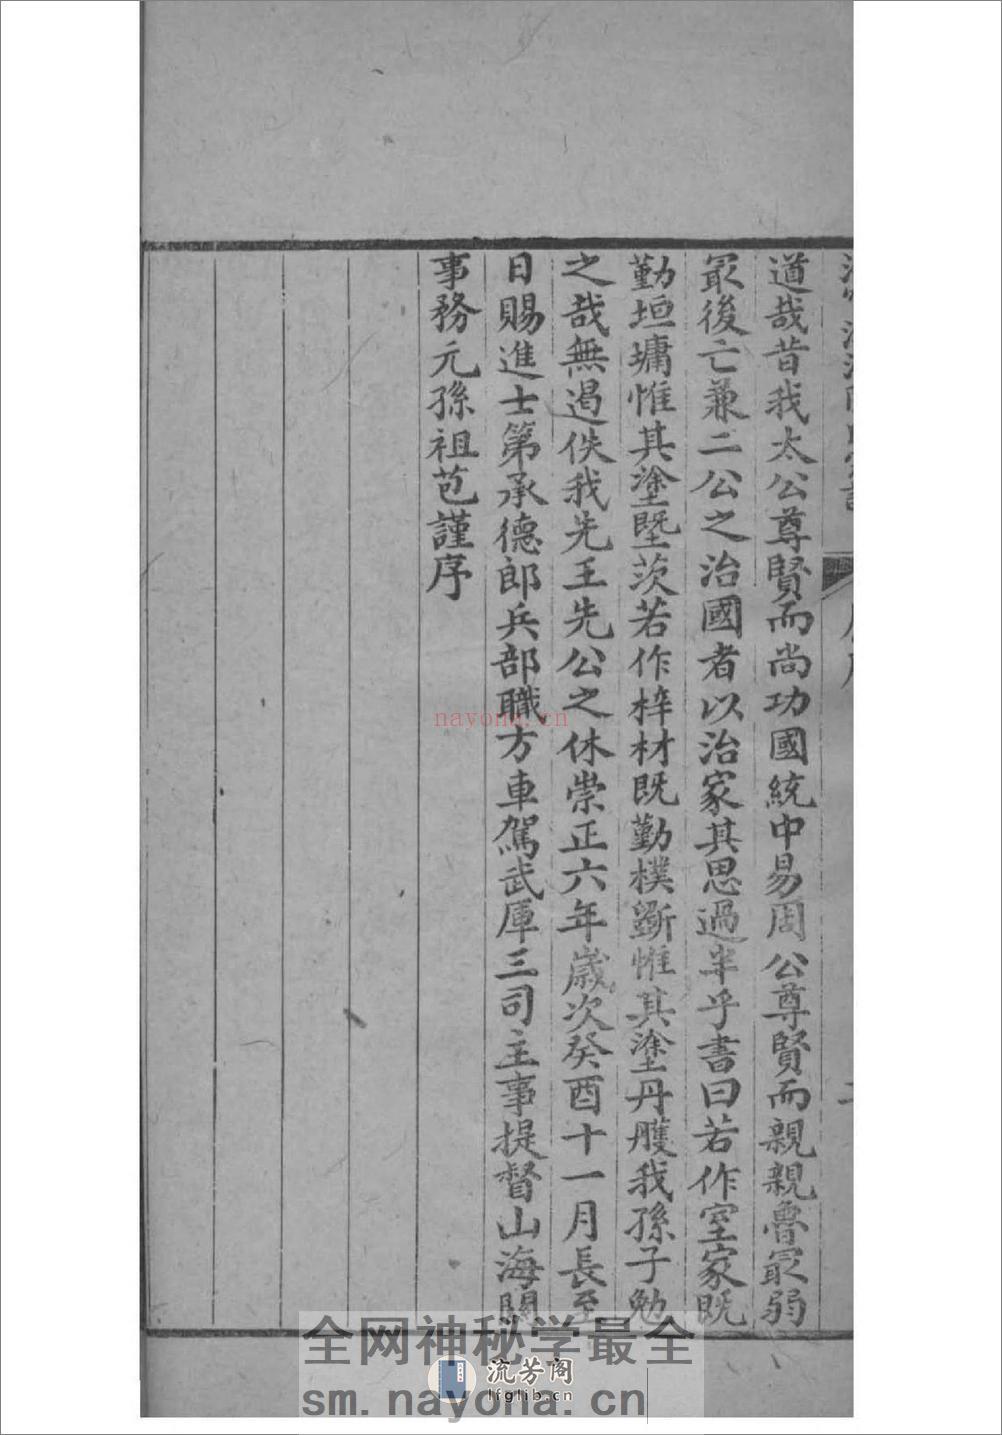 道哉昔我太公尊賢而尚功國統中易周公尊賢而親親魯冣弱
冣後亡兼二公之治國者以治家其思過半乎書曰若作室家旣
勤垣墉惟其塗墍茨若作梓材旣勤樸斵惟其塗丹雘我孫子勉
之哉無遏佚我先王先公之休崇正六年歲次癸酉十一月長至
日賜進士第承德郎兵部職方車駕武庫三司主事提督山海關
事務元孫祖苞謹序
nayona.cn
全网神秘学最全
流芳阁
lfglib.cn
sm.nayona.cn